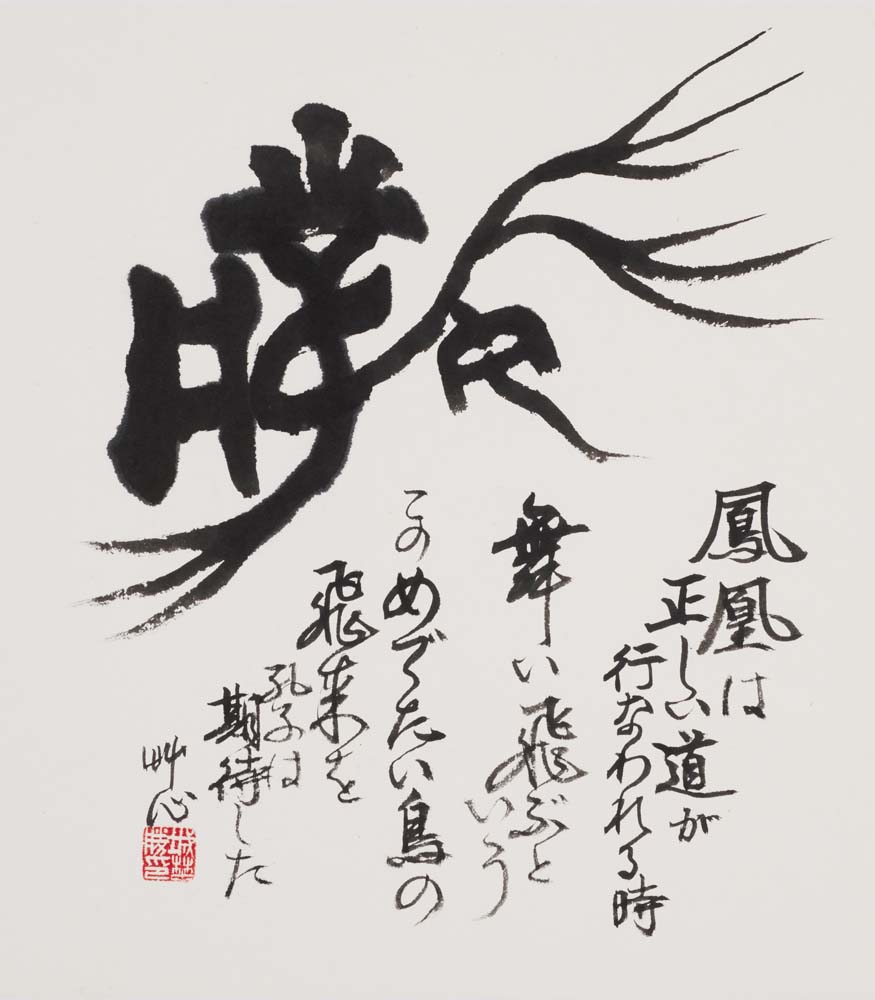 鳳凰は
正しい道が
行なわれる時
舞い飛ぶと
いう
このめでたい鳥の
飛来を
孔子は
期待した
艸心